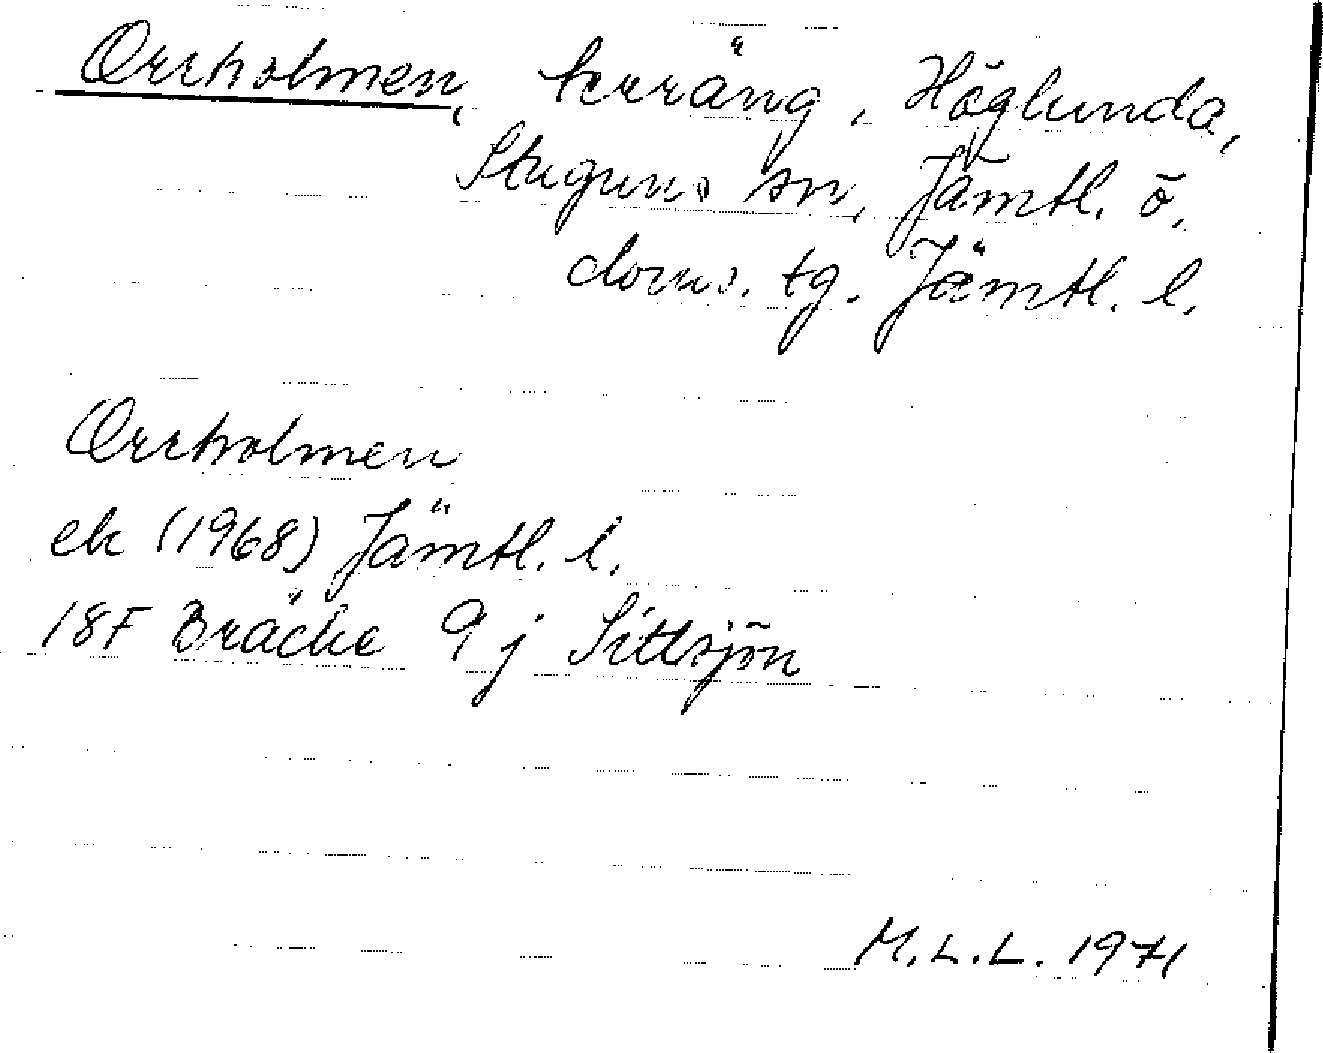 Orrholmen, terräng, Höglunda,
Stuguns sn, Jämtl. ö.
doms. tg. Jämtl. l.
Orrholmen
ek (1968) Jämtl. l.
18F Bräcke 9 j Sittsjön
M.L.L. 1971